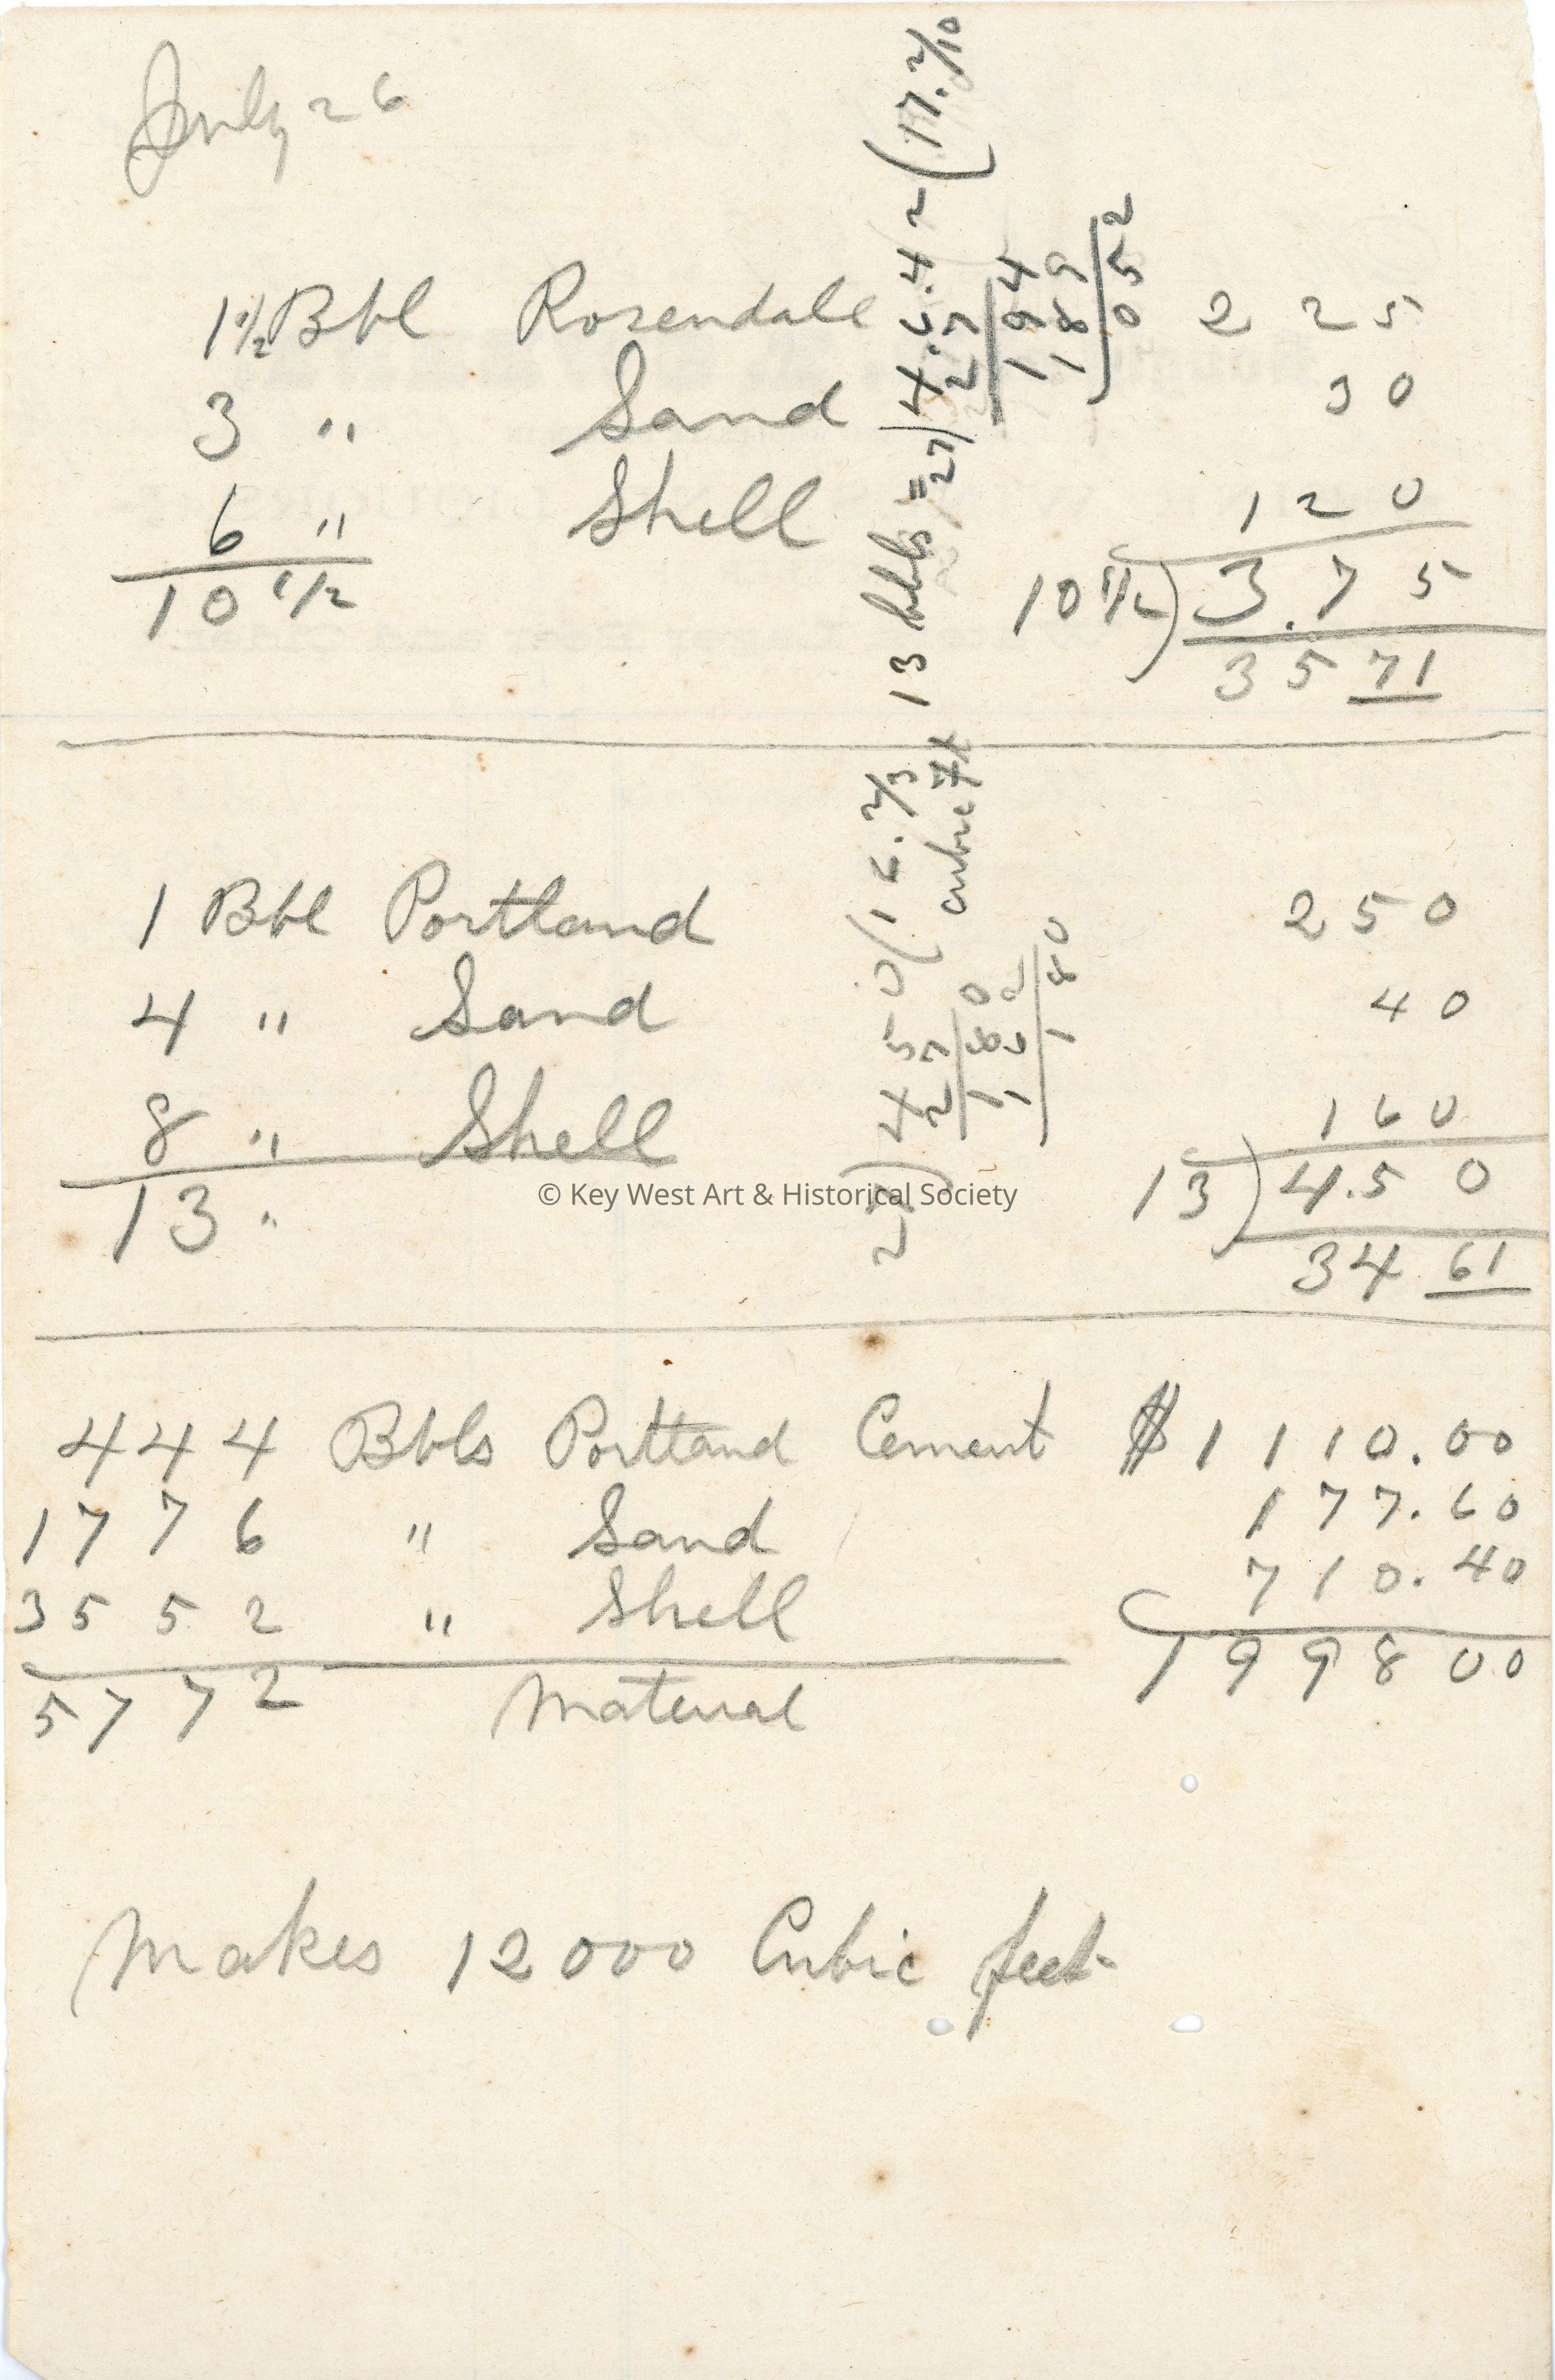 July 26
1 1/2 Bbl Rosendale 2 25
3 " Sand 30
6 " Shell 120
10 1/2
10 1/2 ) 3.75
35 71
13 bbls = 27 ) 4.6.4 2 ( 17.2/10
27
194
189
052
1 Bbl Portland 250
4 " Sand 40
8 " Shell 160
13 "
13 ) 4.50
34 61
27 ) 450.0 ( 16.2/3
cubic ft
27
180
162
180
© Key West Art & Historical Society
444 Bbls Portland Cement $1110.00
1776 " Sand 177.60
3552 " Shell 710.40
5772 Material 199800
Makes 12000 Cubic feet